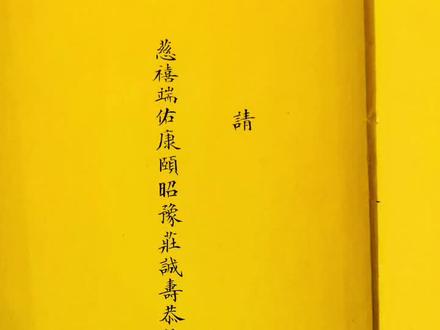 請
慈禧端佑康頤昭豫莊誠壽恭